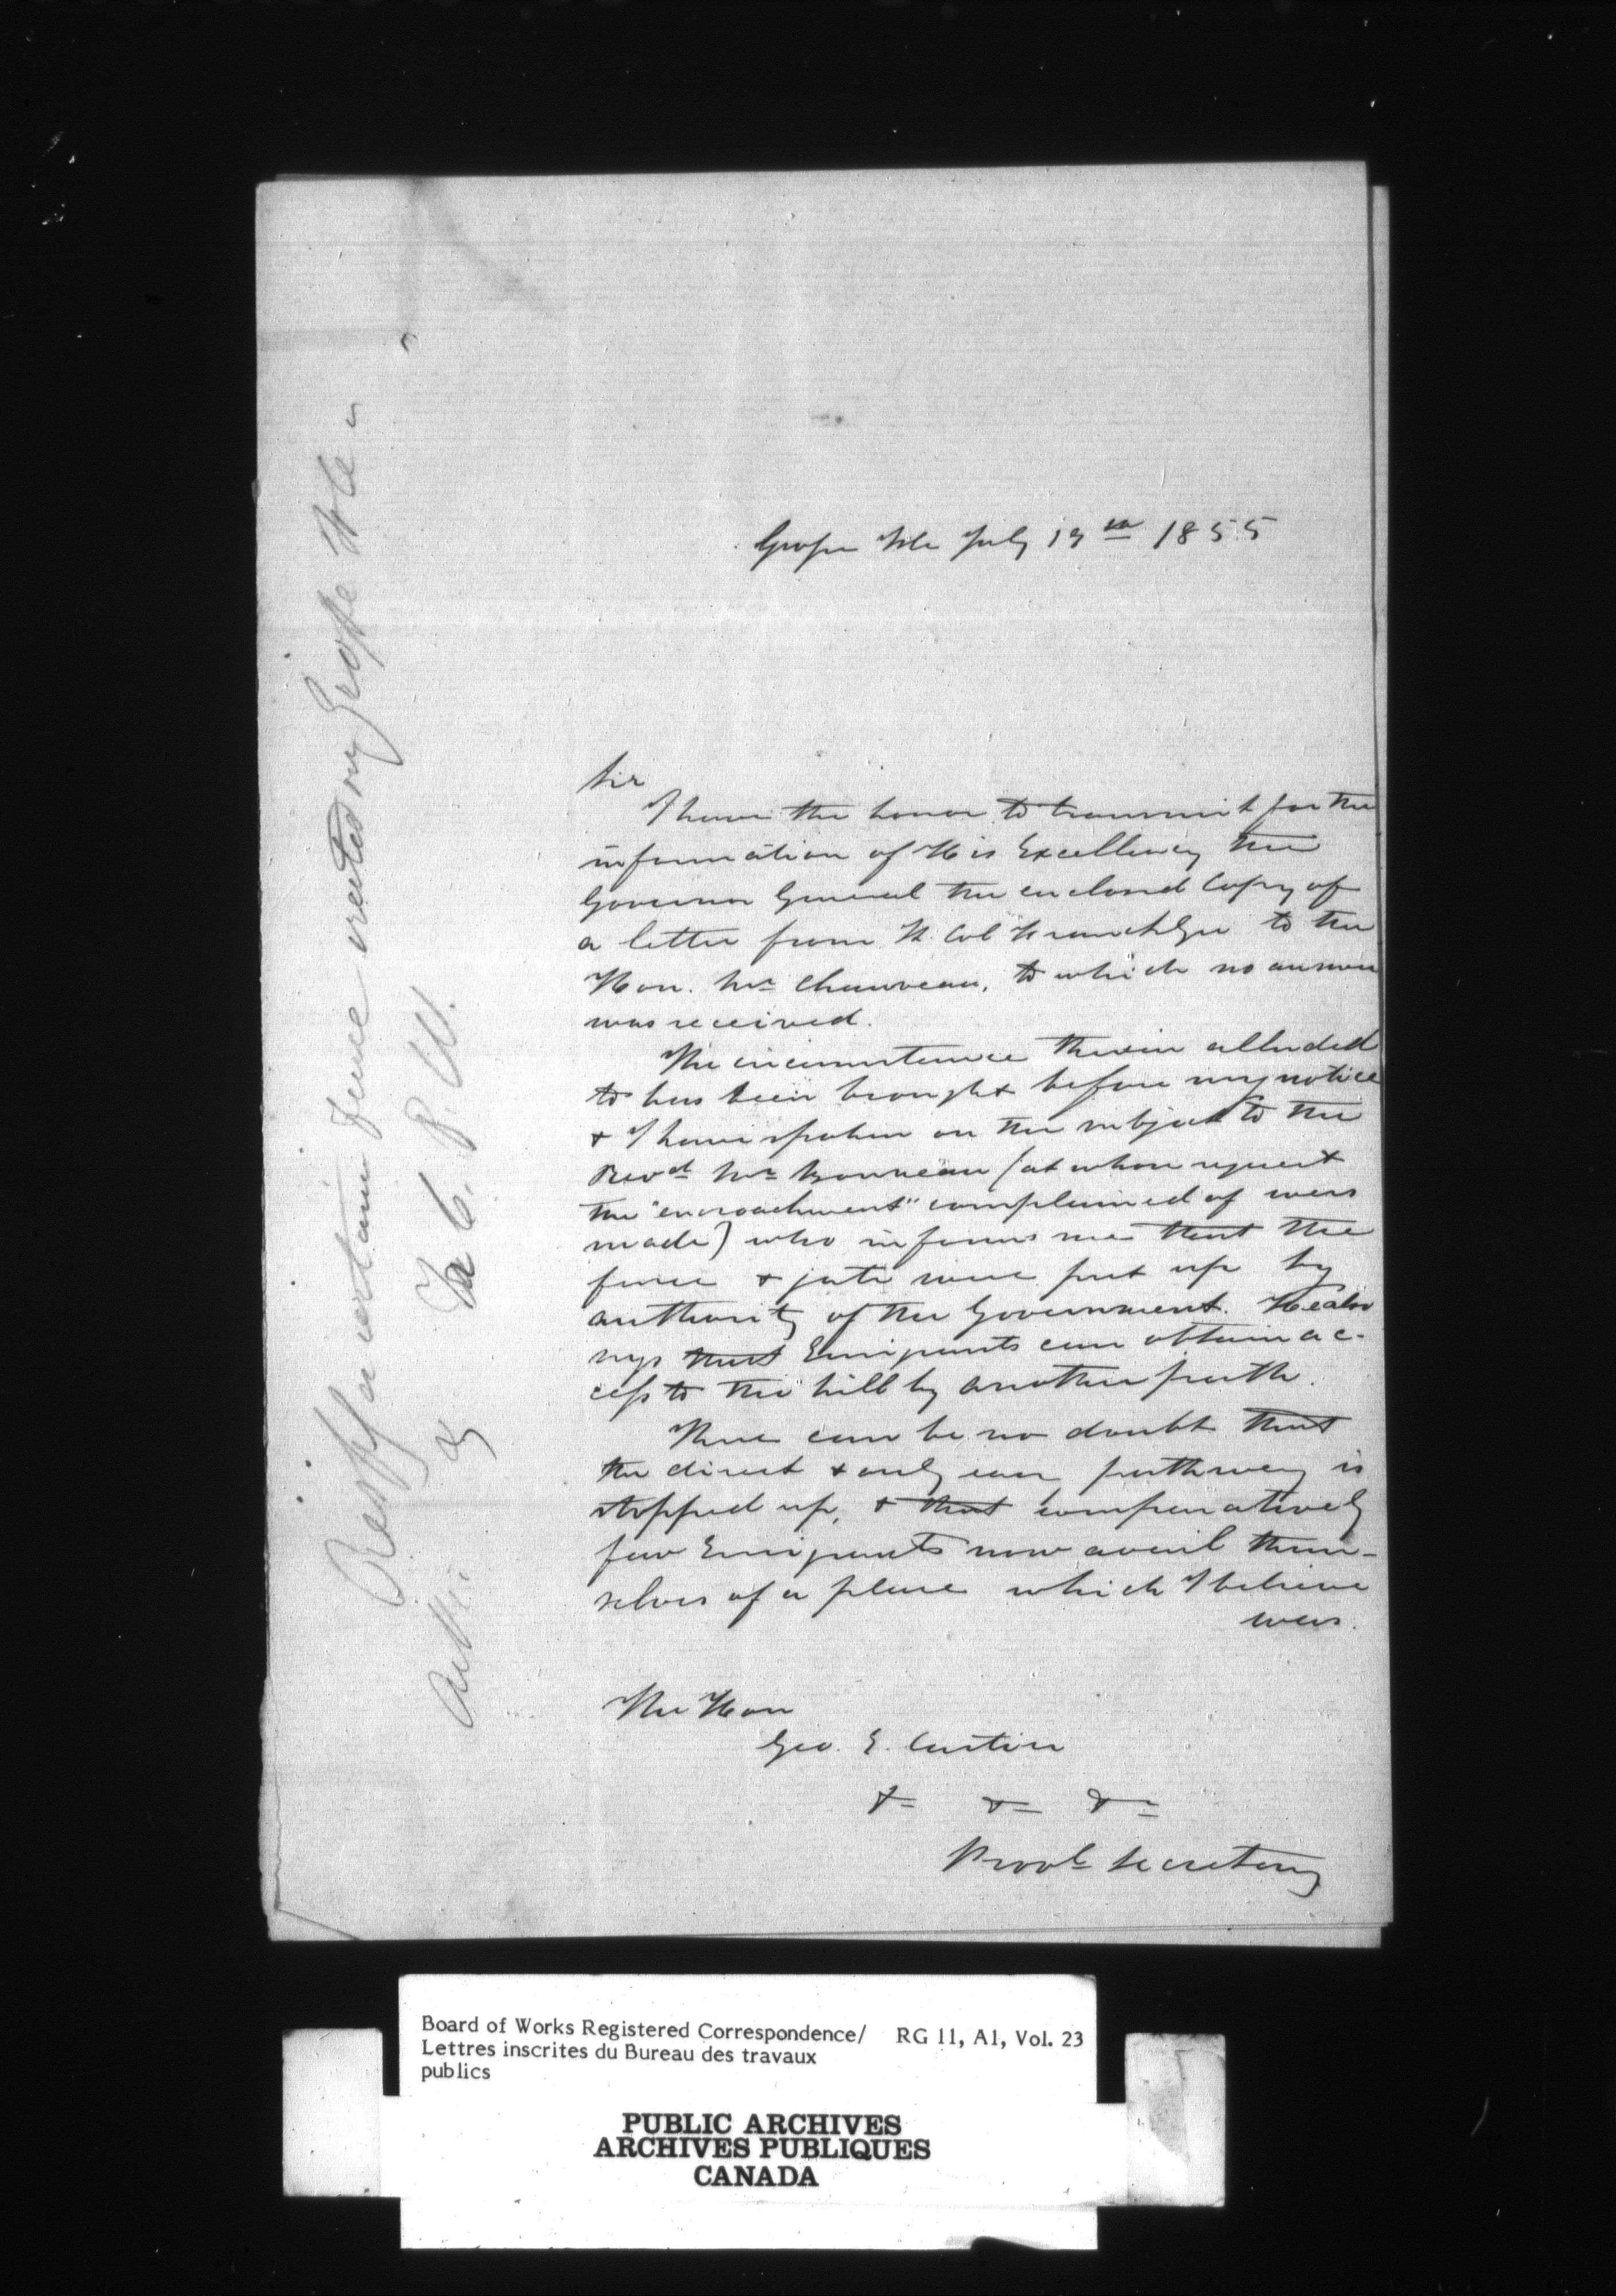 Grosse Isle July 19th 1855
Sir
I have the honor to transmit for the
information of His Excellency the
Governor General the enclosed Copy of
a letter from Lt. Col to the
Hon. Mr Chauveau, to which no answer
was received.
The circumstance therein alluded
to has been brought before my notice
& I have spoken on the subject to the
Revd Mr Bonneau (at whose request
the "encroachment" complained of was
made) who informs me that the
fence & gate were put up by
authority of the Government. He also
says that Emigrants can obtain ac-
cess to the hill by another path.
There can be no doubt that
the direct & only easy pathway is
stopped up, & that comparatively
few Emigrants now avail them-
selves of a place which I believe
was.
The Hon
Geo. E. Cartier
&c &c &c
Provl Secretary
Respg a certain fence erected on Grosse Isle
C. P. W.
Board of Works Registered Correspondence/ RG 11, A1, Vol. 23
Lettres inscrites du Bureau des travaux
publics
PUBLIC ARCHIVES
ARCHIVES PUBLIQUES
CANADA